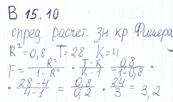 В 15.10
опред. расчет. зн кр Фишера
R²=0,8 T=28 K=4
F = R²/1-R² · T-K/K-1 = 0,8/1-0,8 ·
· 28-4/4-1 = 0,8/0,2 · 24/3 = 32